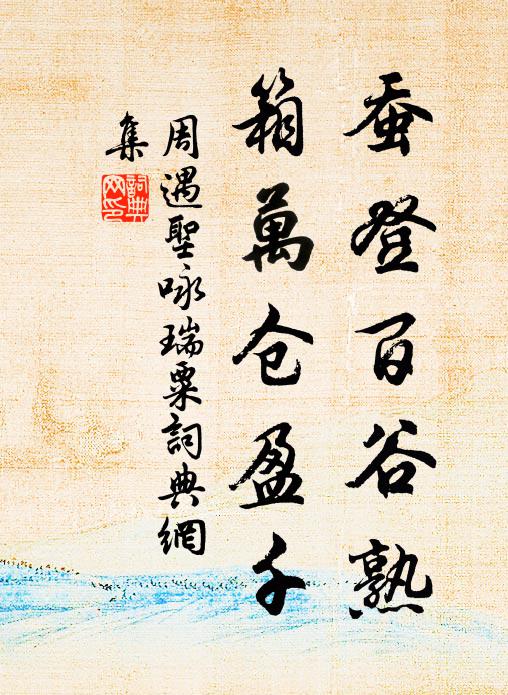 蚕登百谷熟
箱萬仓盈千
周遇聖咏瑞粟詞典網
集
詞典
网印